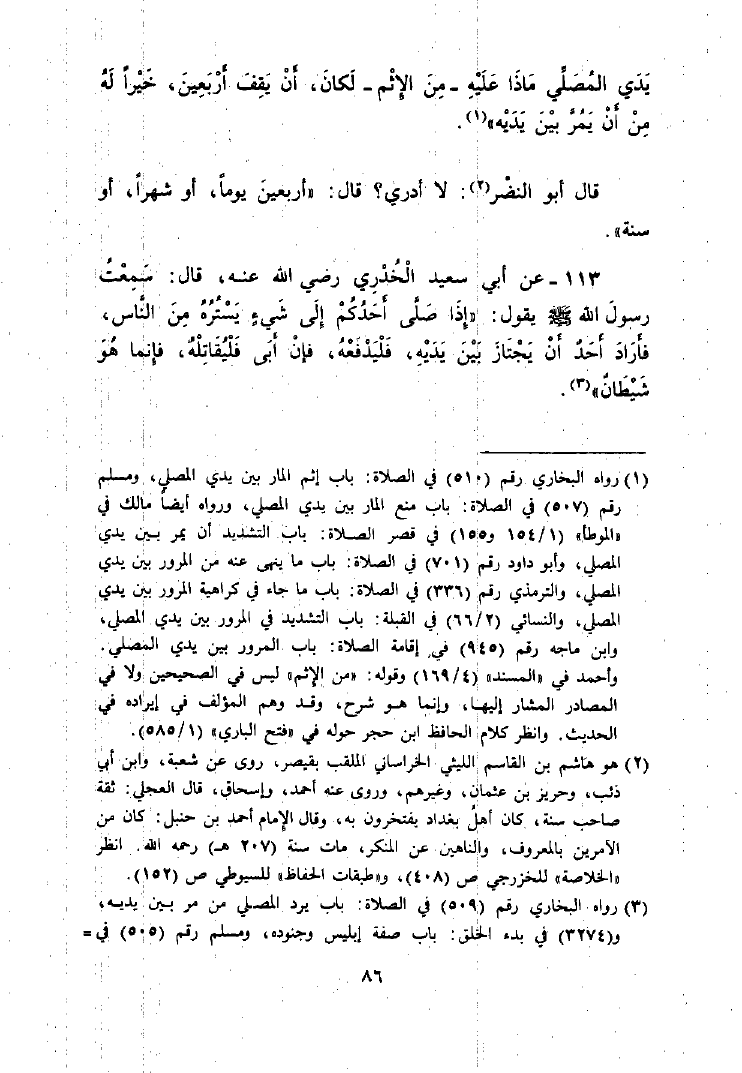 يَدَي المُصَلِّي مَاذَا عَلَيْهِ - مِنَ الإِثْمِ - لَكانَ، أَنْ يَقِفَ أَرْبَعِينَ، خَيْراً لَهُ
مِنْ أَنْ يَمُرَّ بَيْنَ يَدَيْه»(١).
قال أبو النضْر(٢): لا أدري؟ قال: «أربعينَ يوماً، أو شهراً، أو
سنة».
١١٣ - عن أبي سعيد الْخُدْرِي رضي الله عنه، قال: سَمِعْتُ
رسولَ الله ﷺ يقول: «إِذَا صَلَّى أَحَدُكُمْ إِلَى شَيءٍ يَسْتُرُهُ مِنَ النَّاس،
فأَرَادَ أَحَدٌ أَنْ يَجْتَازَ بَيْنَ يَدَيْهِ، فَلْيَدْفَعْهُ، فإنْ أَبَى فَلْيُقَاتِلْهُ، فإنما هُوَ
شَيْطَانٌ»(٣).
(١) رواه البخاري رقم (٥١٠) في الصلاة: باب إثم المار بين يدي المصلي، ومسلم
رقم (٥٠٧) في الصلاة: باب منع المار بين يدي المصلي، ورواه أيضاً مالك في
«الموطأ» (١/ ١٥٤ و١٥٥) في قصر الصلاة: باب التشديد أن يمر بين يدي
المصلي، وأبو داود رقم (٧٠١) في الصلاة: باب ما ينهى عنه من المرور بين يدي
المصلي، والترمذي رقم (٣٣٦) في الصلاة: باب ما جاء في كراهية المرور بين يدي
المصلي، والنسائي (٢/ ٦٦) في القبلة: باب التشديد في المرور بين يدي المصلي،
وابن ماجه رقم (٩٤٥) في إقامة الصلاة: باب المرور بين يدي المصلي.
وأحمد في «المسند» (٤/ ١٦٩) وقوله: «من الإثم» ليس في الصحيحين ولا في
المصادر المشار إليها، وإنما هو شرح، وقد وهم المؤلف في إيراده في
الحديث. وانظر كلام الحافظ ابن حجر حوله في «فتح الباري» (١/ ٥٨٥).
(٢) هو هاشم بن القاسم الليثي الخراساني الملقب بقيصر، روى عن شعبة، وابن أبي
ذئب، وحريز بن عثمان، وغيرهم، وروى عنه أحمد، وإسحاق، قال العجلي: ثقة
صاحب سنة، كان أهلُ بغداد يفتخرون به، وقال الإمام أحمد بن حنبل: كان من
الآمرين بالمعروف، والناهين عن المنكر، مات سنة (٢٠٧ هـ) رحمه الله. انظر
«الخلاصة» للخزرجي ص (٤٠٨)، و«طبقات الحفاظ» للسيوطي ص (١٥٢).
(٣) رواه البخاري رقم (٥٠٩) في الصلاة: باب يرد المصلي من مر بين يديه،
و(٣٢٧٤) في بدء الخلق: باب صفة إبليس وجنوده، ومسلم رقم (٥٠٥) في =
٨٦